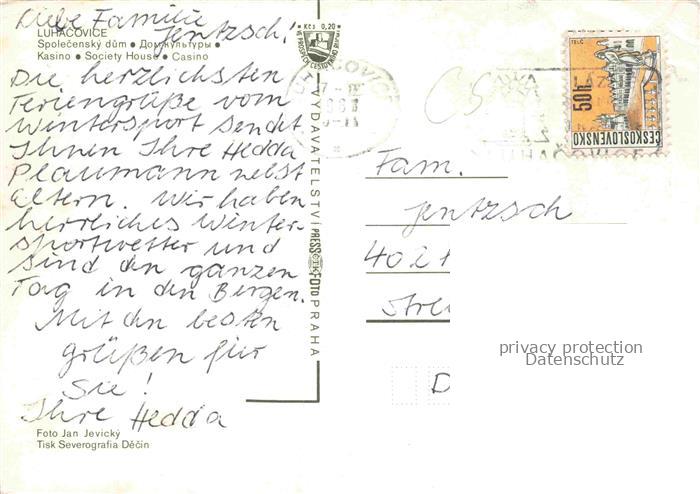 Liebe Familie
Jentzsch!
LUHAČOVICE
Společenský dům • Дом культуры •
Kasino • Society House • Casino
Die herzlichsten
Feriengrüße vom
Wintersport sendet
Ihnen Ihre Hedda
Plaumann nebst
Eltern. Wir haben
herrliches Winter-
sportwetter und
sind den ganzen
Tag in den Bergen.
Mit den besten
Grüßen für
Sie!
Ihre Hedda
Foto Jan Jevický
Tisk Severografia Děčín
Kčs 0,20
VYDAVATELSTVÍ PRESSFOTO PRAHA
ČS
TELČ
50h
ČESKOSLOVENSKO
LUHAČOVICE
Fam.
Jentzsch
402
Stre
D
privacy protection
Datenschutz